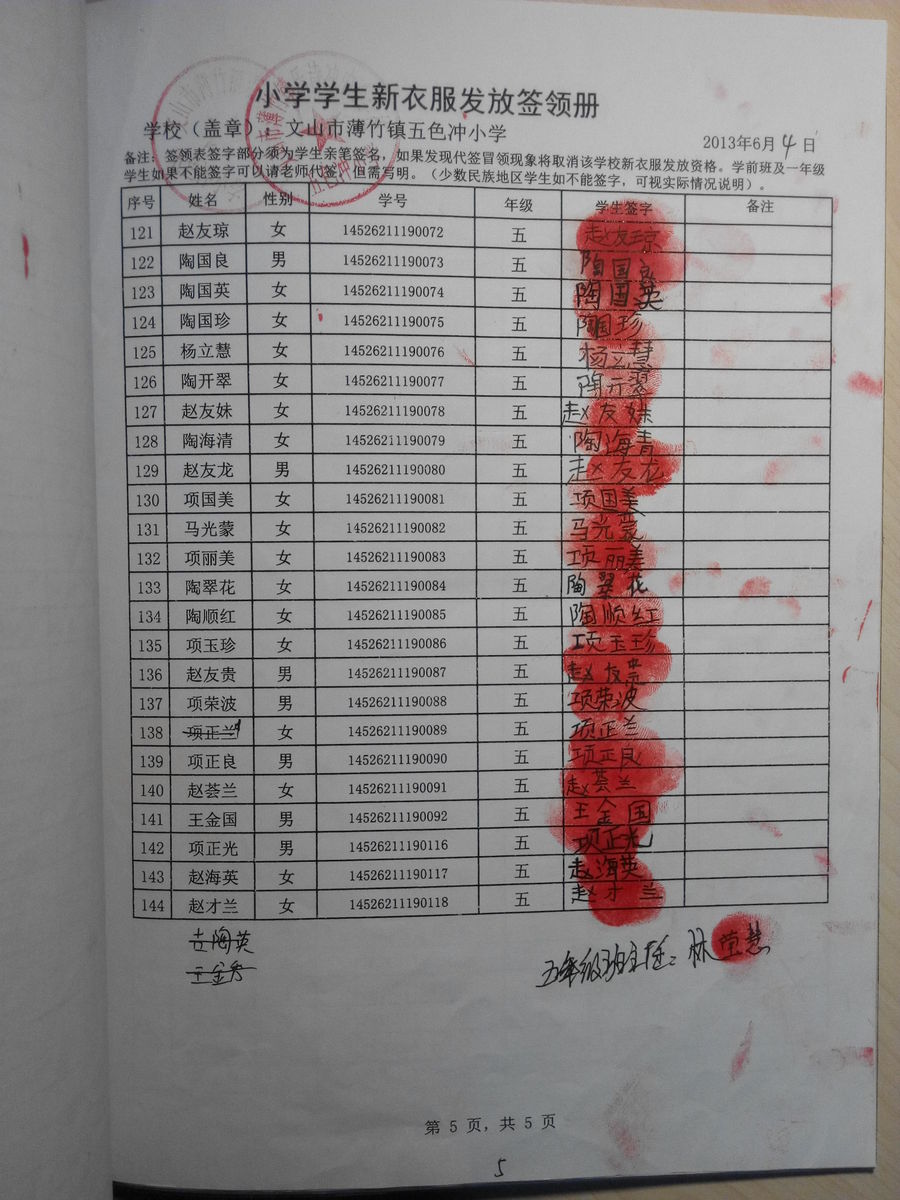 小学学生新衣服发放签领册
学校（盖章）：文山市薄竹镇五色冲小学
2013年6月4日
备注：签领表签字部分须为学生亲笔签名，如果发现代签冒领现象将取消该学校新衣服发放资格。学前班及一年级
学生如果不能签字可以请老师代签，但需写明。（少数民族地区学生如不能签字，可视实际情况说明）。
序号 姓名 性别 学号 年级 学生签字 备注
121 赵友琼 女 14526211190072 五 赵友琼
122 陶国良 男 14526211190073 五 陶国良
123 陶国英 女 14526211190074 五 陶国英
124 陶国珍 女 14526211190075 五 陶国珍
125 杨立慧 女 14526211190076 五 杨立慧
126 陶开翠 女 14526211190077 五 陶开翠
127 赵友妹 女 14526211190078 五 赵友妹
128 陶海清 女 14526211190079 五 陶海青
129 赵友龙 男 14526211190080 五 赵友龙
130 项国美 女 14526211190081 五 项国美
131 马光蒙 女 14526211190082 五 马光蒙
132 项丽美 女 14526211190083 五 项丽美
133 陶翠花 女 14526211190084 五 陶翠花
134 陶顺红 女 14526211190085 五 陶顺红
135 项玉珍 女 14526211190086 五 项玉珍
136 赵友贵 男 14526211190087 五 赵友贵
137 项荣波 男 14526211190088 五 项荣波
138 项正兰 女 14526211190089 五 项正兰
139 项正良 男 14526211190090 五 项正良
140 赵荟兰 女 14526211190091 五 赵荟兰
141 王金国 男 14526211190092 五 王金国
142 项正光 男 14526211190116 五 项正光
143 赵海英 女 14526211190117 五 赵海英
144 赵才兰 女 14526211190118 五 赵才兰
陶英
王金秀
五年级班主任：林莹慧
第 5 页，共 5 页
5